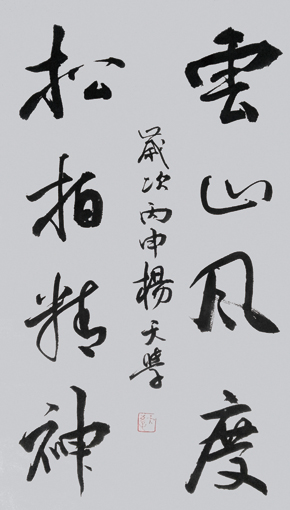 雲山風度
松柏精神
歲次丙申楊天學